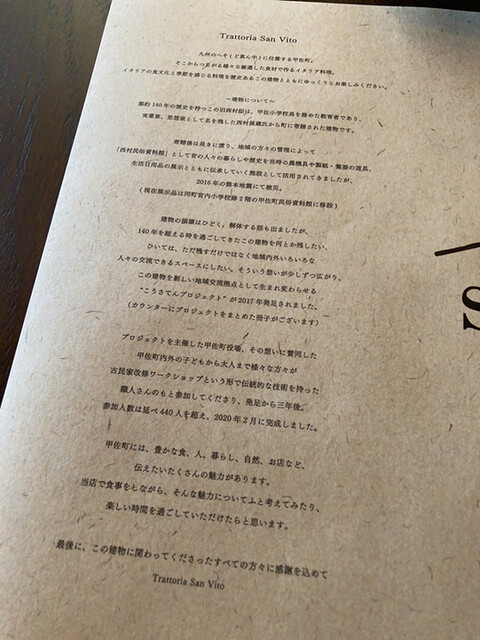 Trattoria San Vito
九州のへそ(ど真ん中)に位置する甲佐町。
そこからつながる様々な厳選した食材で作るイタリア料理。
イタリアの食文化と季節を感じる料理を歴史あるこの建物とともにゆっくりとお楽しみください。
〜建物について〜
築約140年の歴史を持つこの旧西村邸は、甲佐小学校長を務めた教育者であり、
実業家、思想家として名を残した西村 氏から町に寄贈された建物です。
寄贈後は長きに渡り、地域の方々の管理によって
「西村民俗資料館」として昔の人々の暮らしや歴史を当時の農機具や製紙・養蚕の道具、
生活日用品の展示とともに伝承していく施設として活用されてきましたが、
2016年の熊本地震にて被災。
(現在展示品は同町宮内小学校跡2階の甲佐町民俗資料館に移設)
建物の損壊はひどく、解体する話も出ましたが、
140年を超える時を過ごしてきたこの建物を何とか残したい、
ひいては、ただ残すだけではなく地域内外いろいろな
人々の交流できるスペースにしたい。そういう想いが少しずつ広がり、
この建物を新しい地域交流拠点として生まれ変わらせる
"こうさてんプロジェクト"が2017年発足されました。
(カウンターにプロジェクトをまとめた冊子がございます)
プロジェクトを主催した甲佐町役場、その想いに賛同した
甲佐町内外の子どもから大人まで様々な方々が
古民家改修ワークショップという形で伝統的な技術を持った
職人さんのもと参加してくださり、発足から三年後。
参加人数は延べ440人を超え、2020年2月に完成しました。
甲佐町には、豊かな食、人、暮らし、自然、お店など、
伝えたいたくさんの魅力があります。
当店で食事をしながら、そんな魅力についてふと考えてみたり、
楽しい時間を過ごしていただけたらと思います。
最後に、この建物に関わってくださったすべての方々に感謝を込めて
Trattoria San Vito